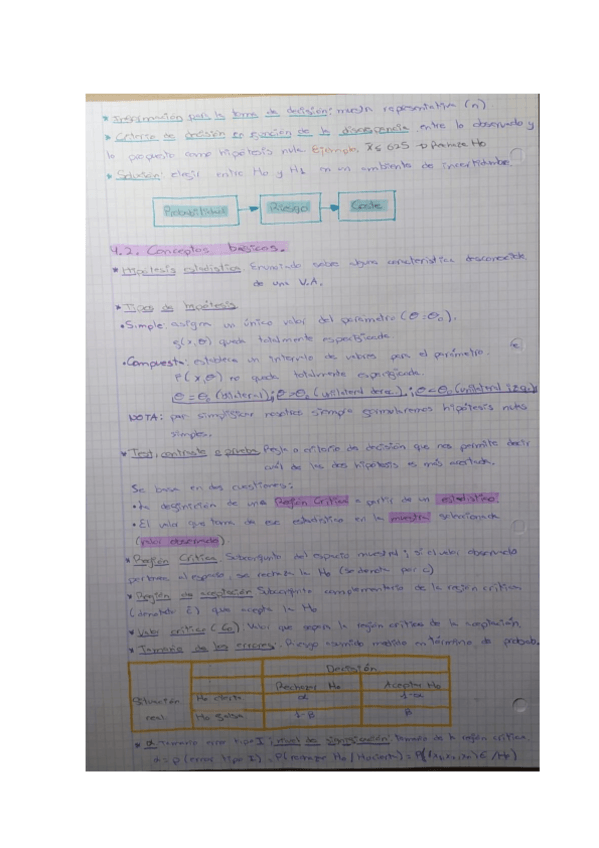 * Información para la toma de decisión: muestra representativa (n)
* Criterio de decisión en función de la discrepancia entre lo observado y
lo propuesto como hipótesis nula. Ejemplo, x̄ ≤ 625 → Rechaza Ho
* Solución: elegir entre Ho y H1 en un ambiente de incertidumbre
Probabilidad → Riesgo → Coste
4.2. Conceptos básicos.
* Hipótesis estadística. Enunciado sobre alguna característica desconocida
de una V.A.
* Tipos de hipótesis
• Simple: asigna un único valor del parámetro (θ=θ0).
queda totalmente especificada
• Compuesta: establece un intervalo de valores para el parámetro.
no queda totalmente especificada.
(bilateral); (unilateral derec.); (unilateral izqda)
NOTA: para simplificar nosotros siempre formularemos hipótesis nulas
simples.
* Test, contraste o prueba. Regla o criterio de decisión que nos permite decir
cuál de las dos hipótesis es más acertada.
Se basa en dos cuestiones:
• La definición de una Región Crítica a partir de un estadístico
• El valor que toma de ese estadístico en la muestra seleccionada
(valor observado)
* Región Crítica Subconjunto del espacio muestral; si el valor observado
pertenece al espacio, se rechaza la Ho (se denota por C)
* Región de aceptación Subconjunto complementario de la región crítica
(denotado) que acepta la Ho
* Valor crítico (Co). Valor que separa la región crítica de la aceptación
* Tamaño de los errores. Riesgo asumido medido en término de probab.
Decisión
Rechazar Ho Aceptar Ho
Situación Ho cierta α 1-α
real Ho falsa 1-β β
* α: tamaño error tipo I; nivel de significación: tamaño de la región crítica.
α = P(error tipo I) = P(rechazar Ho / Ho cierta) =